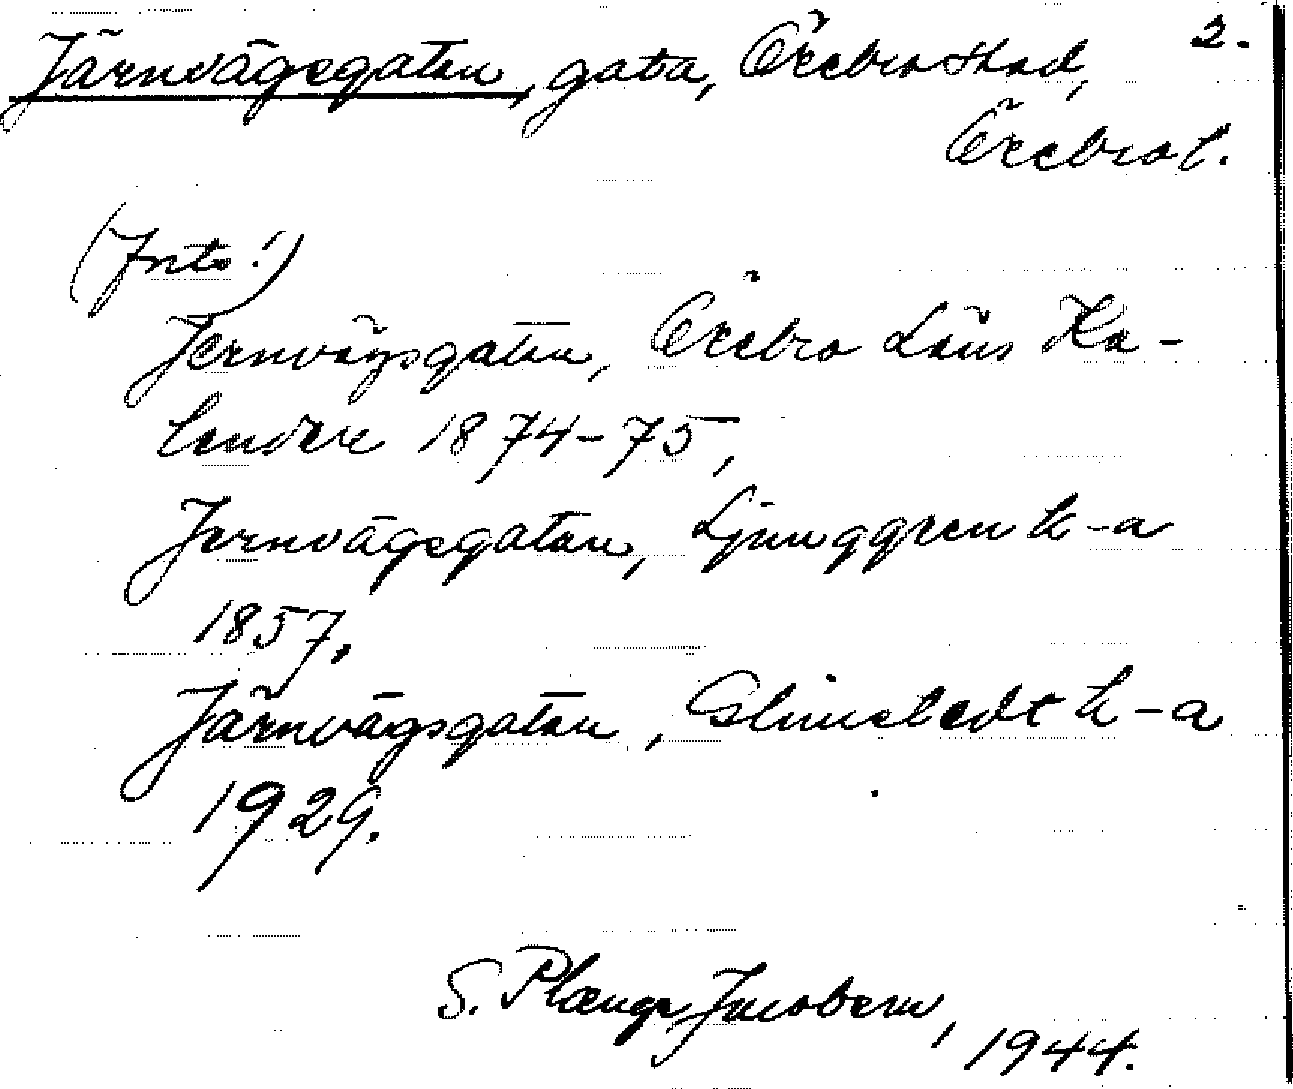 2.
Järnvägsgatan, gata, Örebro stad,
Örebro l.
(Forts!)
Jernvägsgatan, Örebro Läns Ka-
lender 1874-75,
Jernvägsgatan, Ljunggren k-a
1857.
Järnvägsgatan, Glimstedt k-a
1929.
S. Plænge Jacobson, 1944.